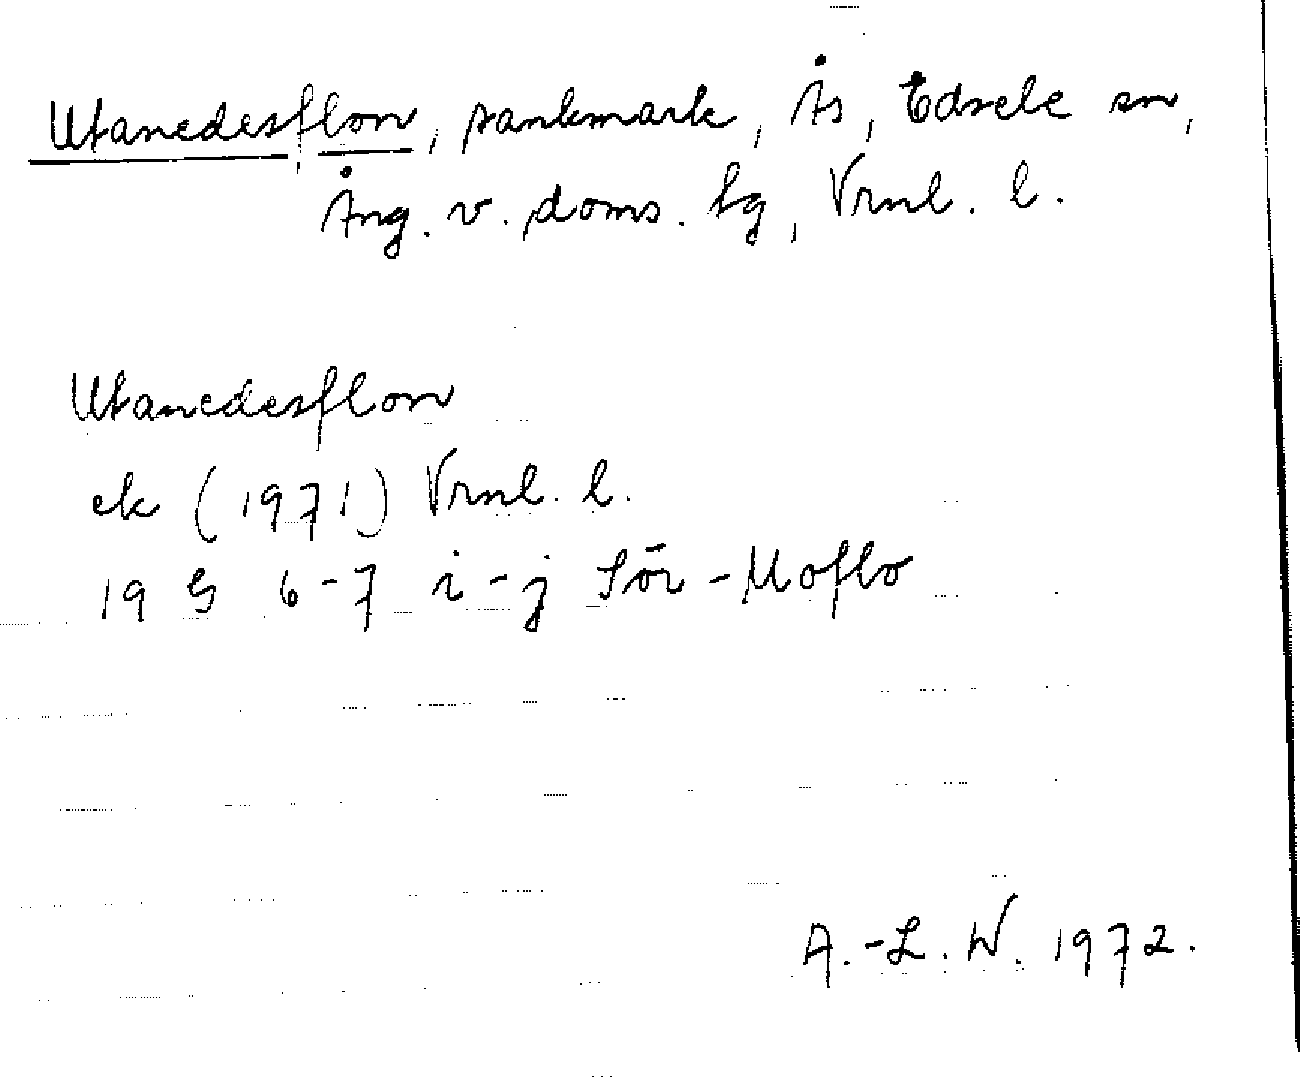 Utanedesflon, sankmark, Ås, Edsele sn,
Ång. v. doms. tg, Vrnl. l.
Utanedesflon
ek (1971) Vrnl. l.
19 G 6-7 i-j Sör-Moflo
A.-L. W. 1972.